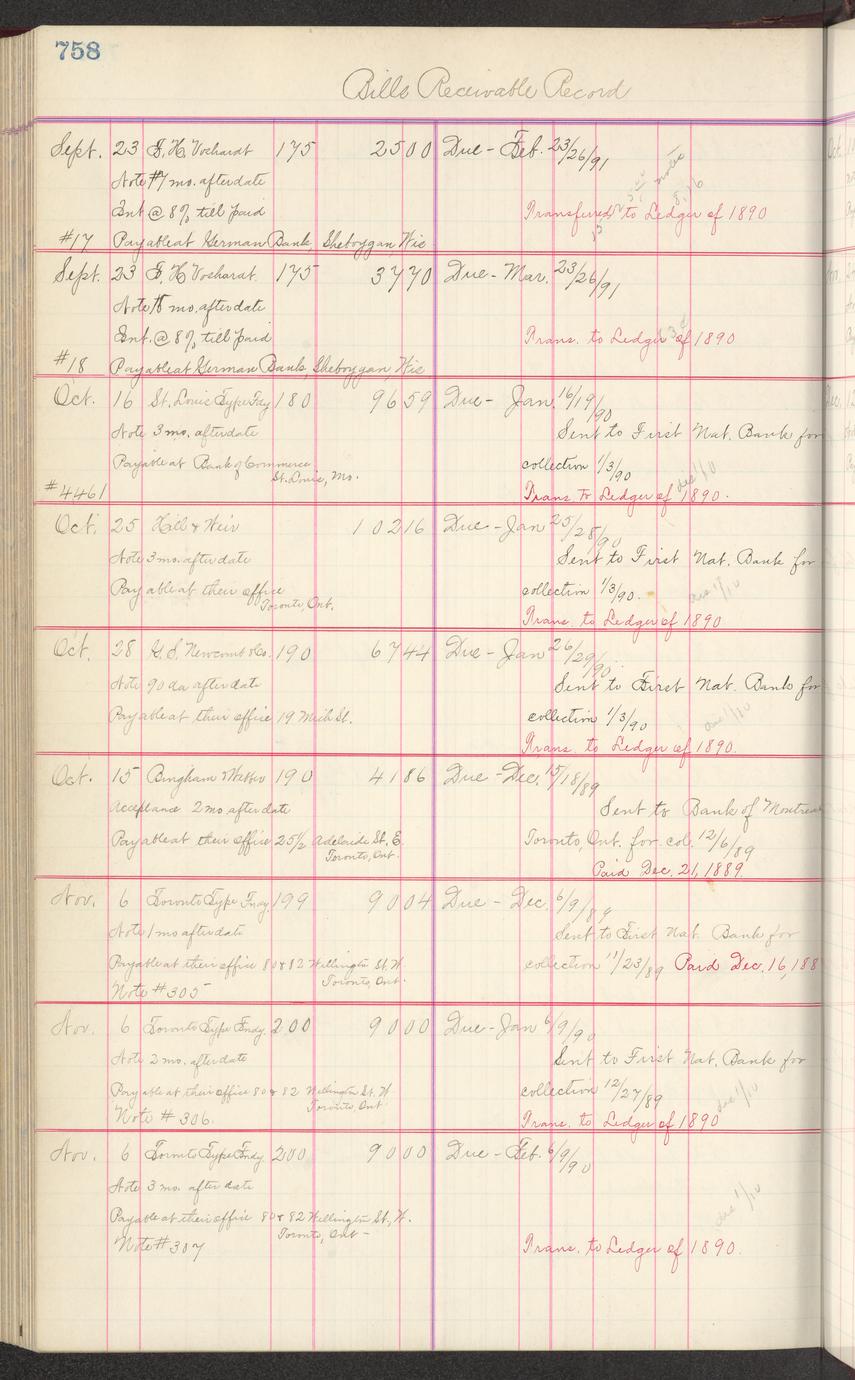 758
Bills Receivable Record
Sept. 23 F. H. Vochardt 175 2500 Due - Feb. 23/26/91
Note #7 mo. after date
Int @ 8% till paid Transferred to Ledger of 1890
#17 Payable at German Bank, Sheboygan, Wis
Sept. 23 F. H. Vochardt. 175 3770 Due - Mar. 23/26/91
Note mo. after date
Int. @ 8% till paid Trans. to Ledger of 1890
#18 Payable at German Bank, Sheboygan, Wis
Oct. 16 St. Louis Type Fdy 180 9659 Due - Jan. 16/19/90
Note 3 mo. after date Sent to First Nat. Bank for
Payable at Bank of Commerce collection 1/3/90
St. Louis, Mo.
#4461 Trans. to Ledger of 1890.
Oct. 25 Hill & Weir 10216 Due - Jan 25/28/90
Note 3 mo. after date Sent to First Nat. Bank for
Payable at their office collection 1/3/90.
Toronto, Ont.
Trans. to Ledger of 1890
Oct. 28 G. S. Newcomb & Co. 190 6744 Due - Jan 26/29/90.
Note 90 da after date Sent to First Nat. Bank for
Payable at their office 19 Mich St. collection 1/3/90
Trans. to Ledger of 1890.
Oct. 15 Bingham & Webber 190 4186 Due - Dec. 15/18/89
Acceptance 2 mo. after date Sent to Bank of Montreal
Payable at their office 25½ Adelaide St. E. Toronto, Ont. for col. 12/6/89
Toronto, Ont.
Paid Dec. 21, 1889
Nov. 6 Toronto Type Fndy. 199 9004 Due - Dec. 6/9/89
Note 1 mo after date Sent to First Nat. Bank for
Payable at their office 80 & 82 Wellington St. W collection 11/23/89 Paid Dec. 16, 188
Toronto, Ont.
Note #305
Nov. 6 Toronto Type Fndy. 200 9000 Due - Jan 6/9/90
Note 2 mo. after date Sent to First Nat. Bank for
Payable at their office 80 & 82 Wellington St. W collection 12/27/89
Toronto, Ont
Note #306. Trans. to Ledger of 1890
Nov. 6 Toronto Type Fndy 200 9000 Due - Feb. 6/9/90
Note 3 mo. after date
Payable at their office 80 & 82 Wellington St., W.
Toronto, Ont -
Note #307 Trans. to Ledger of 1890.